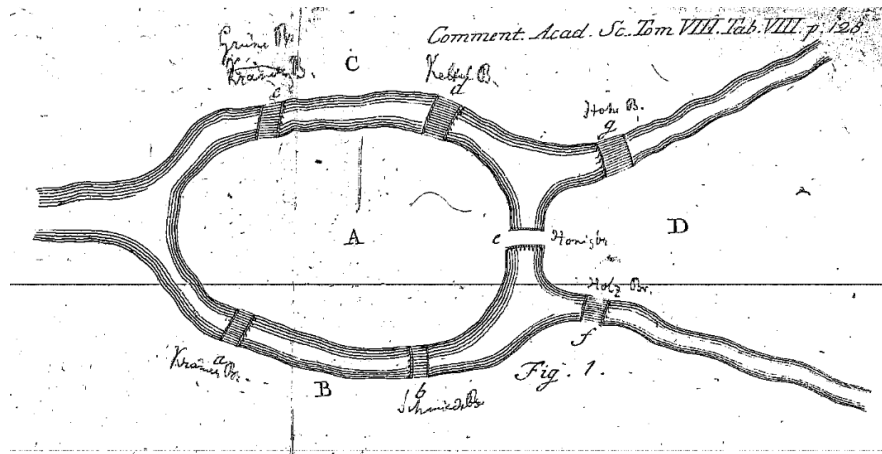 Comment. Acad. Sc. Tom VIII. Tab. VIII. p. 128.
Grüne B.
Kramer B.
c
C
d
Hohe B.
g
A
e
Honigbr.
D
Holz Br.
f
a
Kramer Br.
B
b
Schmiede Br.
Fig. 1.